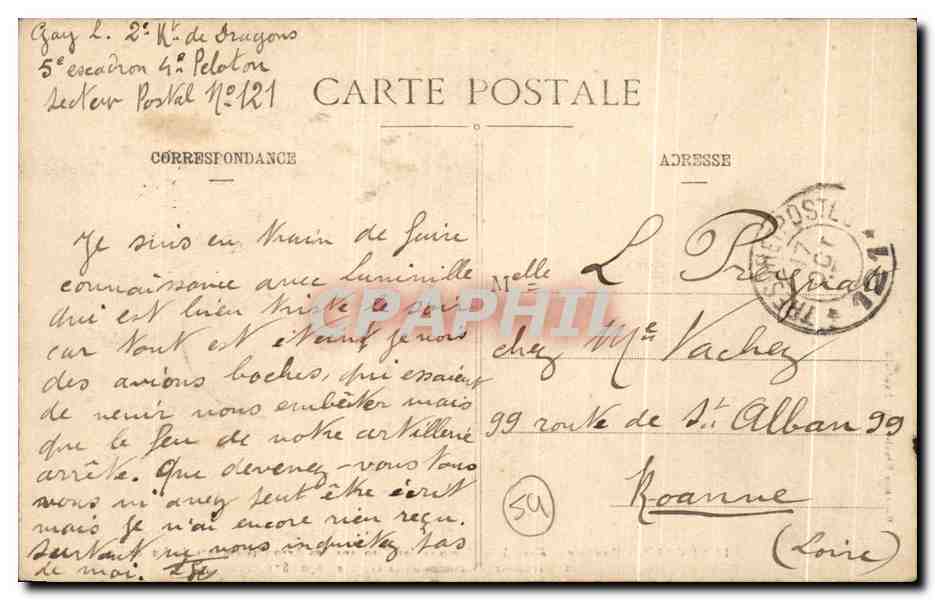 Gay L. 2e Rt de Dragons
5e escadron 4e Peloton
Secteur Postal No 121
CARTE POSTALE
CORRESPONDANCE
Je suis en train de faire
connaissance avec Luneville
qui est bien triste le soir
car tout est éteint je vois
des avions boches, qui essaient
de venir nous embêter mais
que le feu de notre artillerie
arrête. Que devenez-vous tous
vous m'avez peut être écrit
mais je n'ai encore rien reçu.
Surtout ne vous inquiétez pas
de moi.
ADRESSE
Melle L
chez Me Vachez
99 route de St Alban 99
Roanne
(Loire)
TRESOR ET POSTES
17
OCT
* 121 *
54
CPAPHIL